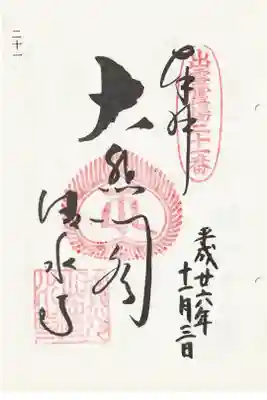 奉拝
出雲霊場二十一番
大悲閣
清水寺
平成廿六年
十一月三日
二十一